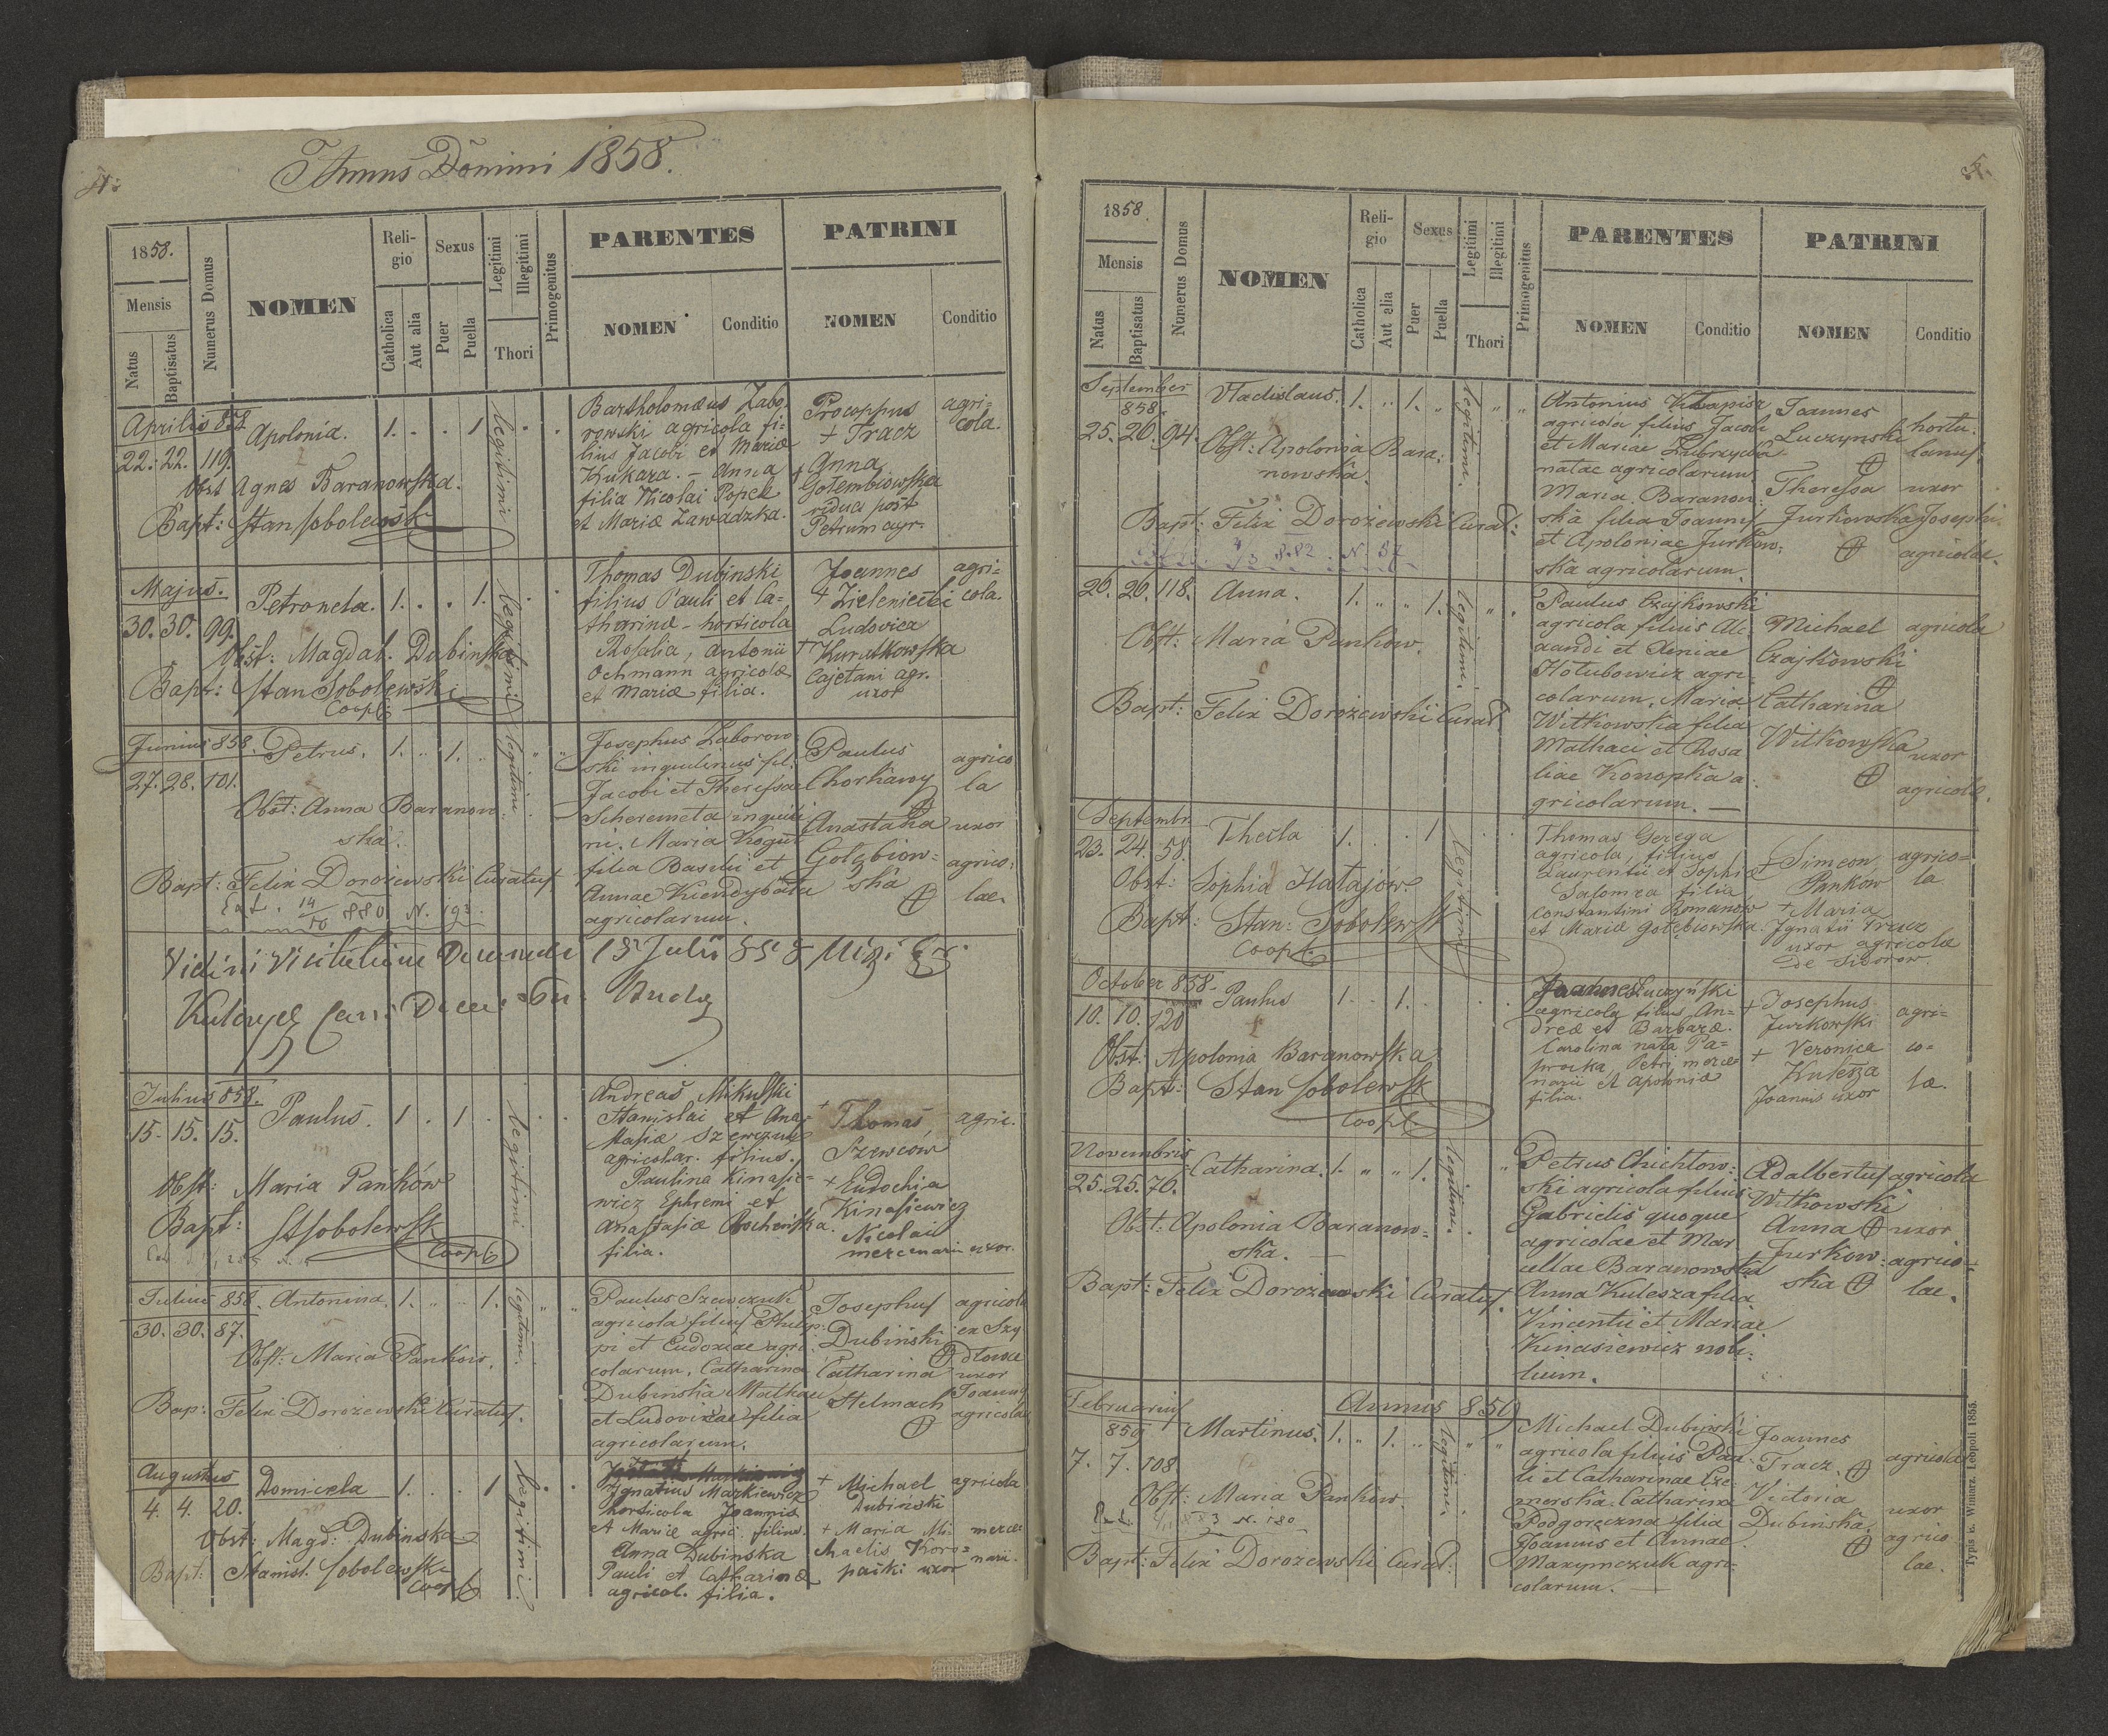 4:
Annus Domini 1858.
1858.
Mensis
Natus
Baptisatus
Numerus Domus
NOMEN
Religio
Catholica
Aut alia
Sexus
Puer
Puella
Legitimi
Illegitimi
Thori
Primogenitus
PARENTES
NOMEN
Conditio
PATRINI
NOMEN
Conditio
Aprilis 858
22. 22. 119.
Apolonia. 1. . . 1
legitimi
Obst Agnes Baranowska.
Bapt: Stan Sobolewski
Bartholomæus Zabo-
rowski agricola fi-
lius Jacobi et Mariæ
Kukara. – Anna
filia Nicolai Popek
et Mariæ Zawadzka.
Procoppus
+ Tracz
+ Anna
Gołembiowska
vidua post
Petrum agr.
agri-
cola.
Majus.
30. 30. 99.
Petronela. 1. . . 1.
legitimi
Obst: Magdal. Dubinska
Bapt: Stan Sobolewski
Coop:
Thomas Dubinski
filius Pauli et Ca-
tharinæ – horticola
Rosalia, Antonii
Ochmann agricolæ
et Mariæ filia.
Joannes
+ Zieleniecki
Ludovica
+ Kuratkowska
Cajetani agr.
uxor
agri-
cola.
Junius 858.
27. 28. 101.
Petrus. 1. .. 1.
legitimi
Obst: Anna Baranow
ska.
Bapt: Felix Dorożewski Curatus
14/10 880 N. 193.
Josephus Zaborow
ski inquilinus fil.
Jacobi et Theressae
Scheremeta inquili
ni. Maria Kogut
filia Basilii et
Annae
agricolarum.
Paulus
Chorkawy
Anastasia
Gołębiow-
ska
agrico
la
uxor
agrico-
lae.
Julius 858.
15. 15. 15.
Paulus. 1 . 1
legitimi
Obst: Maria Pańków
Bapt: St Sobolewsk
Coop:
Andreas Mikulski
Stanislai et Ana-
stasiæ Szewczuk
agricolar. filius.
Paulina Kinasie-
wicz Ephremi et
Anastasiæ
filia.
+ Thomas,
Szewców
+ Eudochia
Kinasiewicz
Nicolai
mercenarii uxor.
agric.
Julius 858.
30. 30. 87.
Antonina. 1. .. .. 1.
legitimi
Obst: Maria Pankow.
Bap: Felix Dorożewski Curatus.
Paulus Szewczuk
agricola filius Philip-
pi et Eudoxiae agri
colarum, Catharina
Dubinska Mathaei
et Ludovicae filia
agricolarum.
Josephus
Dubiński
Catharina
Stelmach
agricola
uxor
Joannis
agricolae
Augustus
4. 4. 20.
Domicela 1. . . 1
legitimi
Obst: Magd: Dubinska
Bapt: Stanisl. Sobolewski
Coop
Ignatius Markiewicz
horticola Joannis
et Mariæ agric. filius.
Anna Dubinska
Pauli et Catharinæ
agricol. filia.
+ Michael
Dubinski
+ Maria Mi-
chaelis Koro-
paiki uxor
agricola
merce-
narii.
5.
1858.
Mensis
Natus
Baptisatus
Numerus Domus
NOMEN
Religio
Catholica
Aut alia
Sexus
Puer
Puella
Legitimi
Illegitimi
Thori
Primogenitus
PARENTES
NOMEN
Conditio
PATRINI
NOMEN
Conditio
September
858.
25. 26. 94.
Vladislaus. 1. .. 1. ..
legitimi
Obst: Apolonia Bara-
nowska.
Bapt: Felix Dorożewski Curat:
882. N. 37
Antonius
agricola filius Jacobi
et Mariae
natae agricolarum
Maria Baranow
ska filia Joannis
et Apoloniae Jurkow-
ska agricolarum.
Joannes
Luczynski
Theressa
Jurkowska
hortu-
lanus
uxor
Josephi
agricolae.
26. 26. 118.
Anna. 1. .. .. 1.
legitimi.
Obst: Maria Pankow.
Bapt: Felix Dorożewski Curat
Paulus Czajkowski
agricola filius Ale-
xandi et Xeniae
Hołubowicz agri
colarum. Maria
Witkowska filia
Mathaei et Rosa
liae Konopka a-
gricolarum. –
Michael
Czajkowski
Catharina
Witkowska
agricola
uxor
agricolæ.
Septembr.
23. 24. 58.
Thecla 1. . . 1
legitimi
Obst: Sophia Hatajow
Bapt: Stan: Sobolewsk
Coop:
Thomas Gerega
agricola, filius
Laurentii et Sophiæ
Salomea filia
Constantini Romanow
et Mariæ Gołębiowska.
+ Simeon
Pankow
+ Maria
Ignatii Tracz
uxor agricolæ
de Sidorow.
agrico-
la
October 858.
10. 10. 120
Paulus 1. . 1.
Obst: Apolonia Baranowska
Bapt: Stan Sobolewsk
Coop:
Joannes Łuczyński
agricola filius An-
dreæ et Barbaræ.
Carolina nata Pa-
procka, Petri merce-
narii et Apoloniæ
filia.
+ Josephus
Jurkowski
+ Veronica
Kulesza
Joannis uxor
agri-
co-
læ.
Novembris
25. 25. 76.
Catharina. 1. .. .. 1.
legitimi.
Obst: Apolonia Baranow-
ska. –
Bapt: Felix Dorożewski Curatus.
Petrus Chichłow-
ski agricola filius
Gabrielis quoque
agricolae et Mar
cellae Baranowska
Anna Kulesza filia
Vincentii et Mariae
Kinasiewicz nobi-
lium.
Adalbertus
Witkowski
Anna
Jurkow-
ska
agricola
uxor
agrico-
lae.
Annus 859
Februarius
859
7. 7. 108
Martinus. 1. .. 1. ..
legitimi.
Obst: Maria Pankow.
883 N. 180
Bapt: Felix Dorożewski Curat:
Michael Dubinski
agricola filius Pau-
li et Catharinae Cze-
merska. Catharina
Podgoreczna filia
Joannis et Annae
Maxymczuk agri-
colarum. –
Joannes
Tracz.
Victoria
Dubinska.
agricola
uxor
agrico
lae.
Typis e. Winiarz. Leopoli 1855.